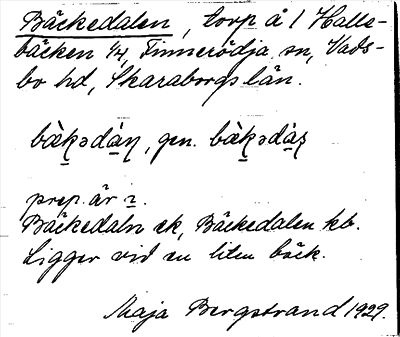 Bäckedalen, torp å 1 Halle-
bäcken 1/4, Finnerödja sn, Vads-
bo hd, Skaraborgs län.
bæ̀k̬ədàṇ, gen. bæ̀k̬ədàṣ
prep. är
Bäckedaln ek, Bäckedalen kb.
Ligger vid en liten bäck.
Maja Bergstrand 1929.